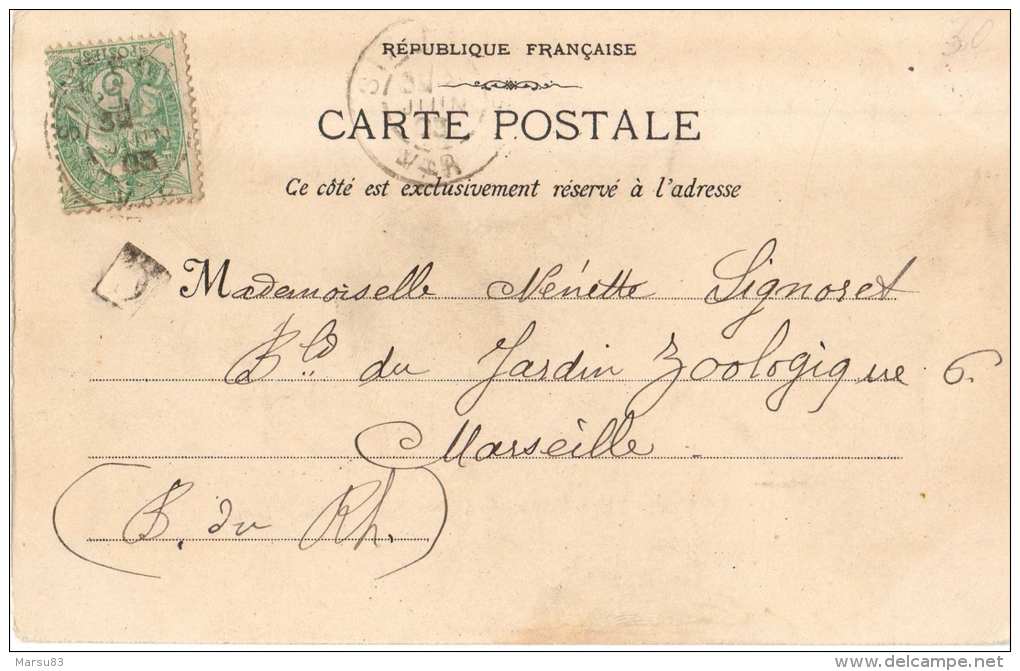 30
RÉPUBLIQUE FRANÇAISE
JUIN
03
VAR
CARTE POSTALE
Ce côté est exclusivement réservé à l'adresse
Mademoiselle Nénette Signoret
Bld du Jardin Zoologique 6.
Marseille.
(B. du Rh.)
Marsu83
delcampe.net